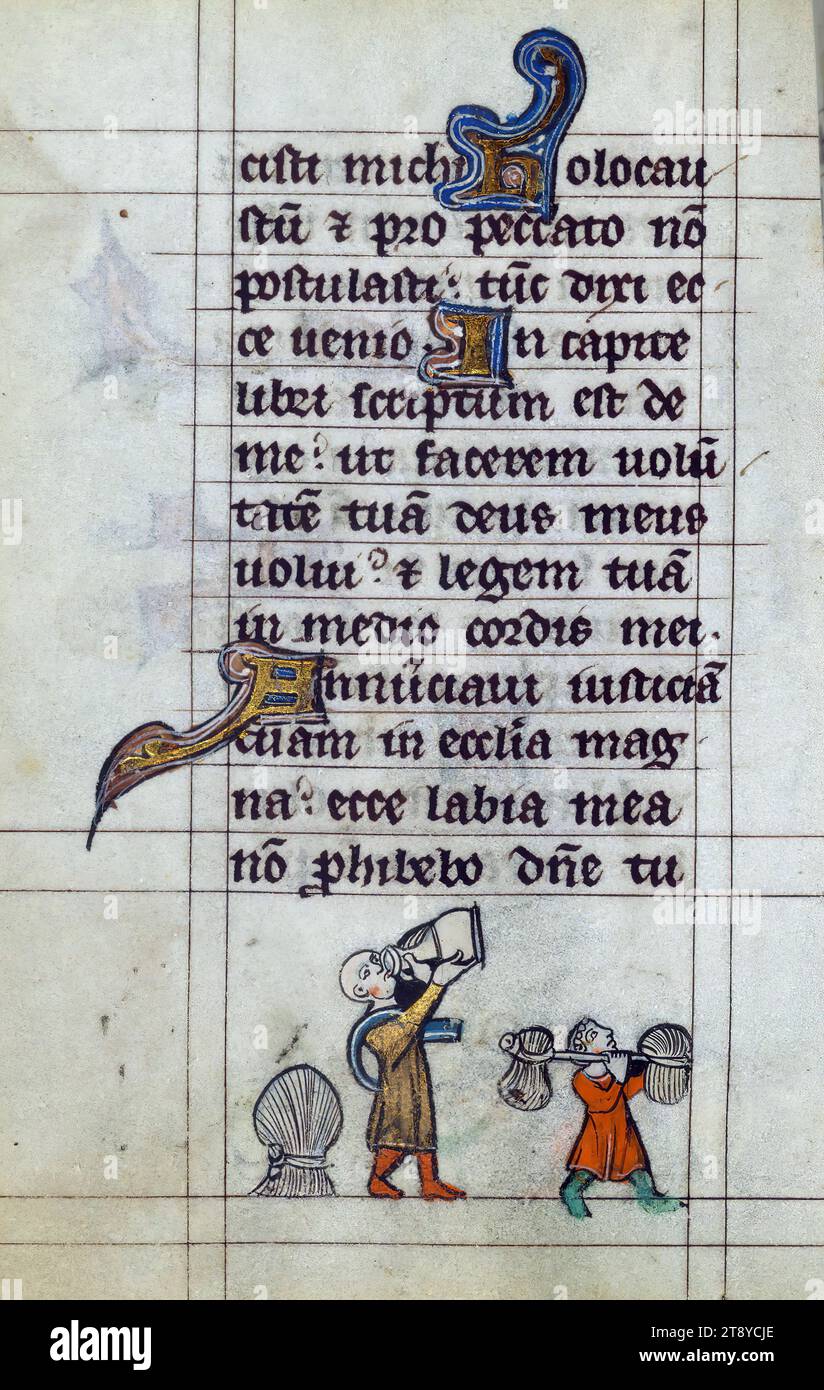 cisti michi holocau
stū ⁊ pro peccato nō
postulasti: tūc dixi ec
ce uenio. In capite
libri scriptum est de
me: ut facerem uolū
tatē tuā deus meus
uolui: ⁊ legem tuā
in medio cordis mei.
Annūciaui iusticiā
tuam in ecclīa mag
na: ecce labia mea
nō ꝓhibebo dn̄e tu
alamy
Image ID: 2T8YCJE
www.alamy.com